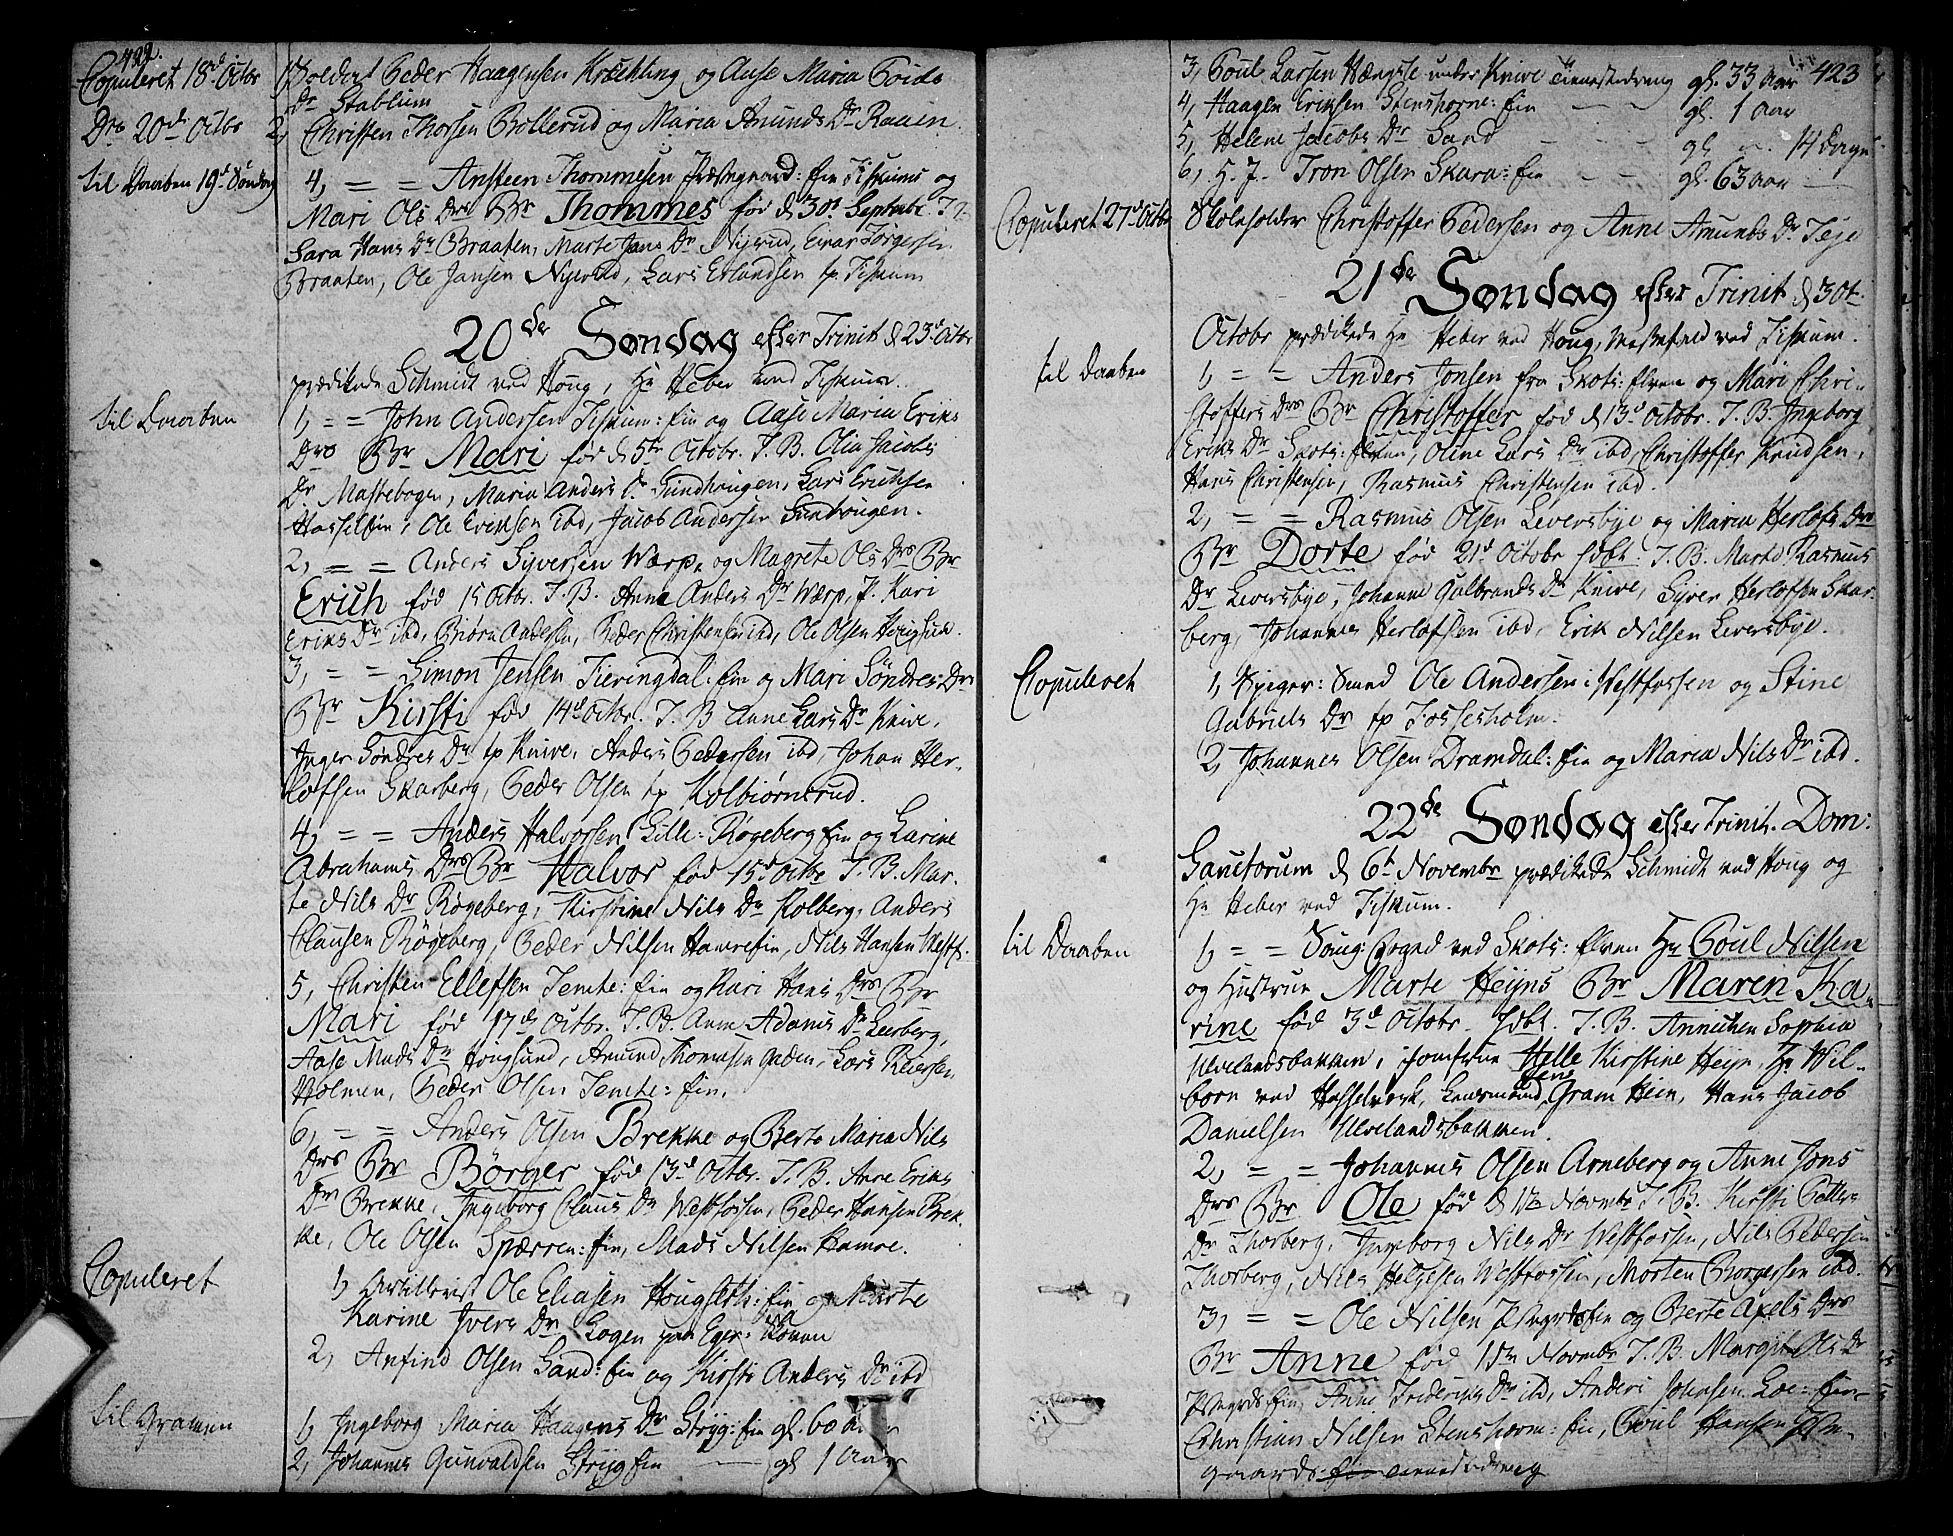 422.
Copuleret 18d Octbr
Soldat Peder Haagensen Krækling og Aase Maria Povels
Dr Stablum
Do 20d Octbr
2, Christen Thorsen Bollerud og Maria Amunds Dr Raaen.
til Daaben 19d Søndag
4, = = Ansteen Thommesen Præstegaard: Ein Fiskums og
Mari Ols Drs Br Thommes fød d 30t Septembr. T.B.
Sara Hans Dr Braaten, Marte Jans Dr Nyerud, Einar Jørgensen
Braaten, Ole Jansen Nyerud, Lars Erlandsen fr Fiskum
20de Søndag efter Trinit d 23d Octbr
prædikede Schmidt ved Houg, Hr Heber ved Fiskum.
til Daaben
1, = = John Andersen Fiskum: Ein og Aase Maria Eriks
Drs Br Mari fød d 5te Octobr. T. B. Olia Jacobs
Dr Mastebogen, Maria Anders Dr Sundhougen, Lars Eriksen
Hasselein, Ole Eriksen ibd, Jacob Andersen Sundhougen.
2, = = Anders Syversen Wærp, og Magrete Ols Drs Br
Erich fød 15 Octbr. T. B. Anne Anders Dr Wærp, P. Kari
Eriks Dr ibd, Biørn Andersen, Peder Christensen ibd, Ole Olsen Hougsund.
3, = = Simon Jensen Fieringdal: Ein og Mari Søndres Drs
Br Kirsti fød 14d Octbr. T. B. Anne Lars Dr Knive,
Inger Søndres Dr fr Knive, Anders Pedersen ibd, Johan Her-
lofsen Skarberg, Peder Olsen fr Kolbiørnsrud.
4, = = Anders Halvorsen Lille: Røgeberg Ein og Karine
Abrahams Drs Br Halvor fød 15d Octbr T. B. Mar-
te Nils Dr Røgeberg, Kirstine Nils Dr Kolberg, Anders
Clausen Røgeberg, Peder Nilsen Hamre Ein, Nils Hansen Westf.
5, Christen Ellefsen Temte: Ein og Kari Hans Drs Br
Mari fød 17de Octbr. T. B. Anne Adams Dr Leerberg,
Aase Mads Dr Hougsund, Amund Thomesen Enden, Lars Reiersen
Holmen, Peder Olsen Temte: Ein.
6, = = Anders Olsen Brekke og Berte Maria Nils
Drs Br Börger fød 13d Octbr. T. B. Anne Eriks
Dr Brekke, Ingeborg Claus Dr Westfossen, Peder Hansen Brek-
ke, Ole Olsen Spærren: Ein, Mads Nilsen Hamre.
Copuleret
1, Artillerist Ole Eliasen Hougseth: Ein og Marte
Karine Ivers Dr Logen paa Eger:
2, Anfind Olsen Sand: Ein og Kirsti Anders Dr ibd
til Graven
1, Ingeborg Maria Haagens Dr Stryg: Ein gl. 60 Aar
2, Johannes Gunvaldsen Stryg Ein gl 1 Aar
423
3, Poul Larsen Hængsle under Knive Tienestedreng gl. 33 Aar
4, Haagen Eriksen Stenshorne: Ein gl. 1 Aar
5, Helene Jacobs Dr Sand gl 14 Dage
6, H. J. Tron Olsen Skara: Ein gl. 63 Aar
Copuleret 27d Octbr
Skoleholder Christoffer Pedersen og Anne Amunds Dr Teje
21de Søndag efter Trinit d 30t
Octobr prædikede Hr Heber ved Houg, Messefald ved Fiskum.
til Daaben
1, = = Anders Jonsen fra Skots: Elven og Mari Chri-
stoffers Drs Br Christoffer fød d 13d Octobr. T. B. Ingeborg
Eriks Dr Skots: Elven, Oline Lars Dr ibd, Christoffer Knudsen,
Hans Christensen, Rasmus Christensen ibd.
2, = = Rasmus Olsen Leversbye og Maria Herlofs Drs
Br Dorte fød 21d Octobr hdbt. T. B. Marte Rasmus
Dr Leversbye, Johanne Gulbrands Dr Knive, Syver Herlofsen Skar-
berg, Johannes Herlofsen ibd, Erik Nilsen Leversbye.
Copuleret
1, Spiger: Smed Ole Andersen i Westfossen og Stine
Gabriels Dr fr Fossesholm.
2, Johannes Olsen Dramdal: Ein og Maria Nils Dr ibd.
22de Søndag efter Trinit. Dom:
Sanctorum d 6t Novembr prædikede Schmidt ved Houg og
Hr Heber ved Fiskum.
til Daaben
1, = = Soug: Foged ved Skots: Elven Hr Poul Nilsen
og Hustrue Marte Heyns Br Maren Ka-
rine fød 3d Octobr. hdbt. T. B. Annichen Sophia
Ulvelandsbakken, Jomfrue Helle Kirstine Heyn, Hr Wil-
born ved Hasselverk, Lensmand Jens Gram Heen, Hans Jacob
Danielsen Ulvelandsbakken.
2, = = Johannes Olsen Arneberg og Anne Jons
Drs Br Ole fød d 1te Novembr T. B. Kirsti Peders
Dr Thorberg, Ingeborg Nils Dr Westfossen, Nils Pedersen
Thorberg, Nils Helgesen Westfossen, Morten Borgersen ibd.
3, = = Ole Nilsen Pstegrds Ein og Berte Axels Drs
Br Anne fød 1te Novembr T. B. Margit Ols Dr
Pstegrds: Ein, Anne Frederiks Dr ibd, Anders Johnsen Loe: Ein
Christian Nilsen Stenshorn: Ein, Poul Hansen Præste-
gaards tienestedreng